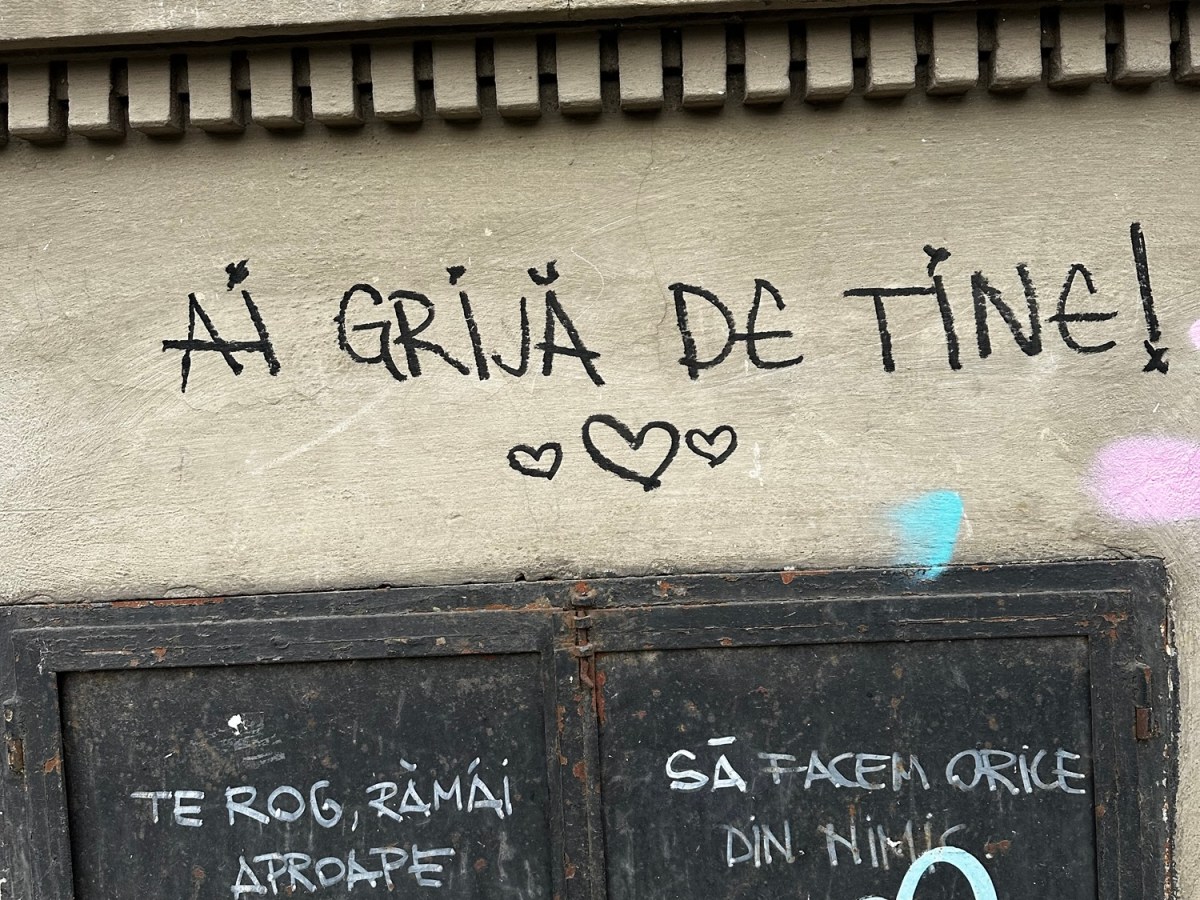 AI GRIJĂ DE TINE!
TE ROG, RĂMÂI
APROAPE
SĂ FACEM ORICE
DIN NIMIC